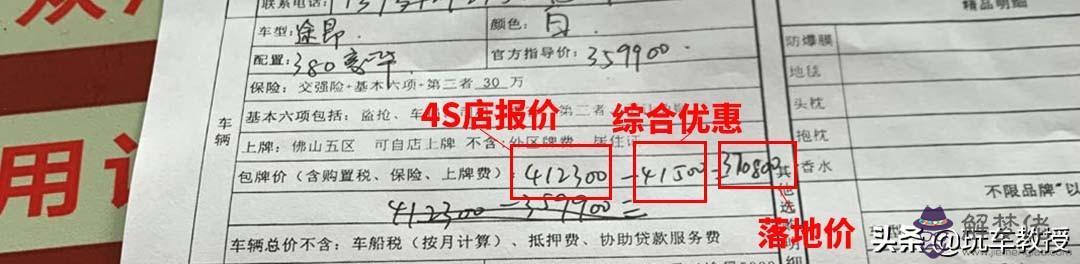 联系电话:
车型: 途昂 颜色: 白
配置: 380豪华 官方指导价: 359900.
保险: 交强险+基本六项+第三者 30 万
基本六项包括: 盗抢、车
4S店报价
综合优惠
上牌: 佛山五区 可自店上牌 不含:外区牌费、居住证
包牌价(含购置税、保险、上牌费): 412300 - 41500 = 370800
412300 - 359900 =
车辆总价不含: 车船税(按月计算)、抵押费、协助贷款服务费
车辆
其他选
明细
落地价
精品明细
防爆膜
地毯
头枕
抱枕
香水
不限品牌“以
用
解梦佬
www.jiemenglao.com
头条@玩车教授